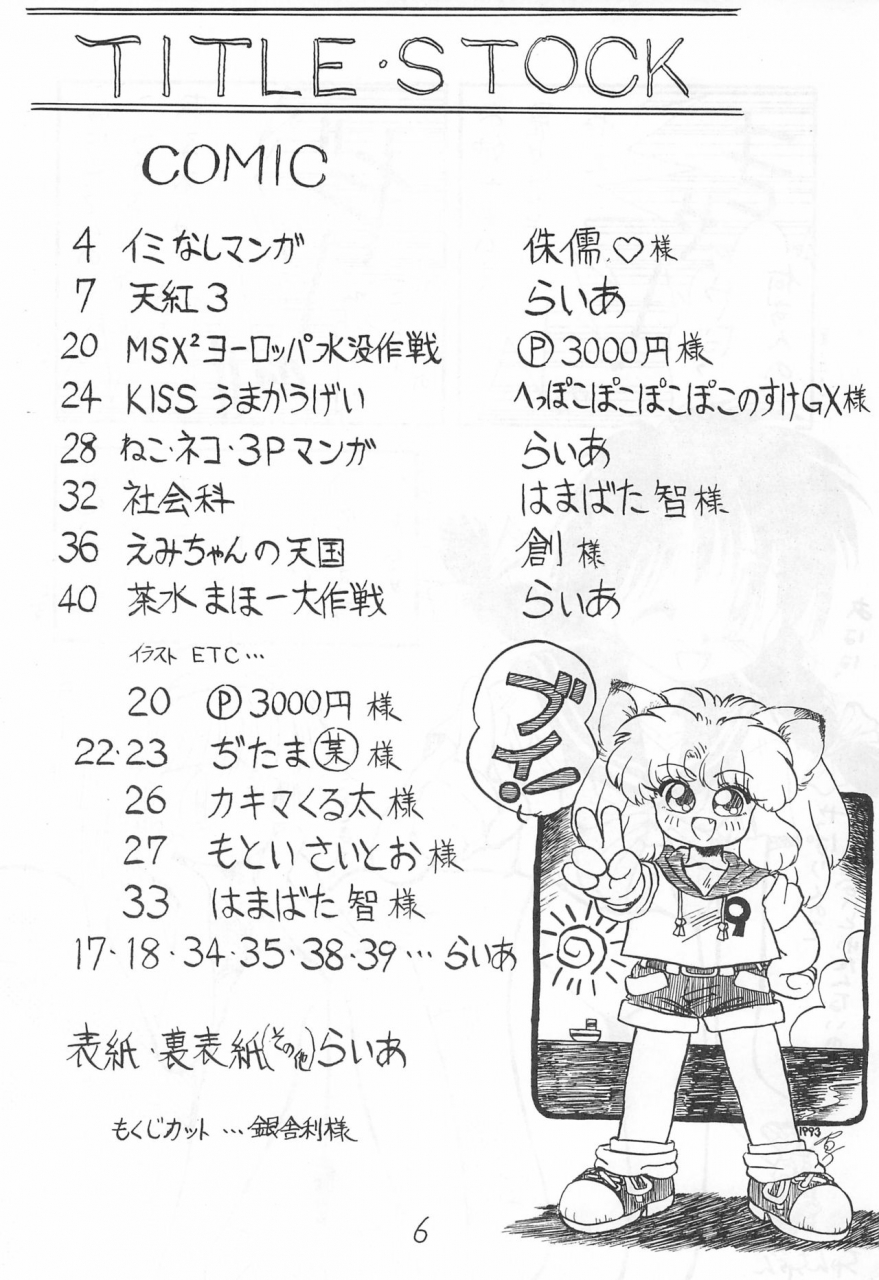 TITLE・STOCK
COMIC
4 イミなしマンガ 侏儒、♡様
7 天紅3 らいあ
20 MSX²ヨーロッパ水没作戦 Ⓟ3000円様
24 KISSうまかうげい へっぽこぽこぽこぽこのすけGX様
28 ねこ・ネコ・3Pマンガ らいあ
32 社会科 はまばた智様
36 えみちゃんの天国 創様
40 茶水まほー大作戦 らいあ
イラスト ETC…
20 Ⓟ3000円様
22・23 ぢたま様
26 カキマくる太様
27 もといさいとお様
33 はまばた智様
17・18・34・35・38・39…らいあ
表紙・裏表紙(その他)らいあ
もくじカット…銀舎利様
ブイ!
9
1993
6